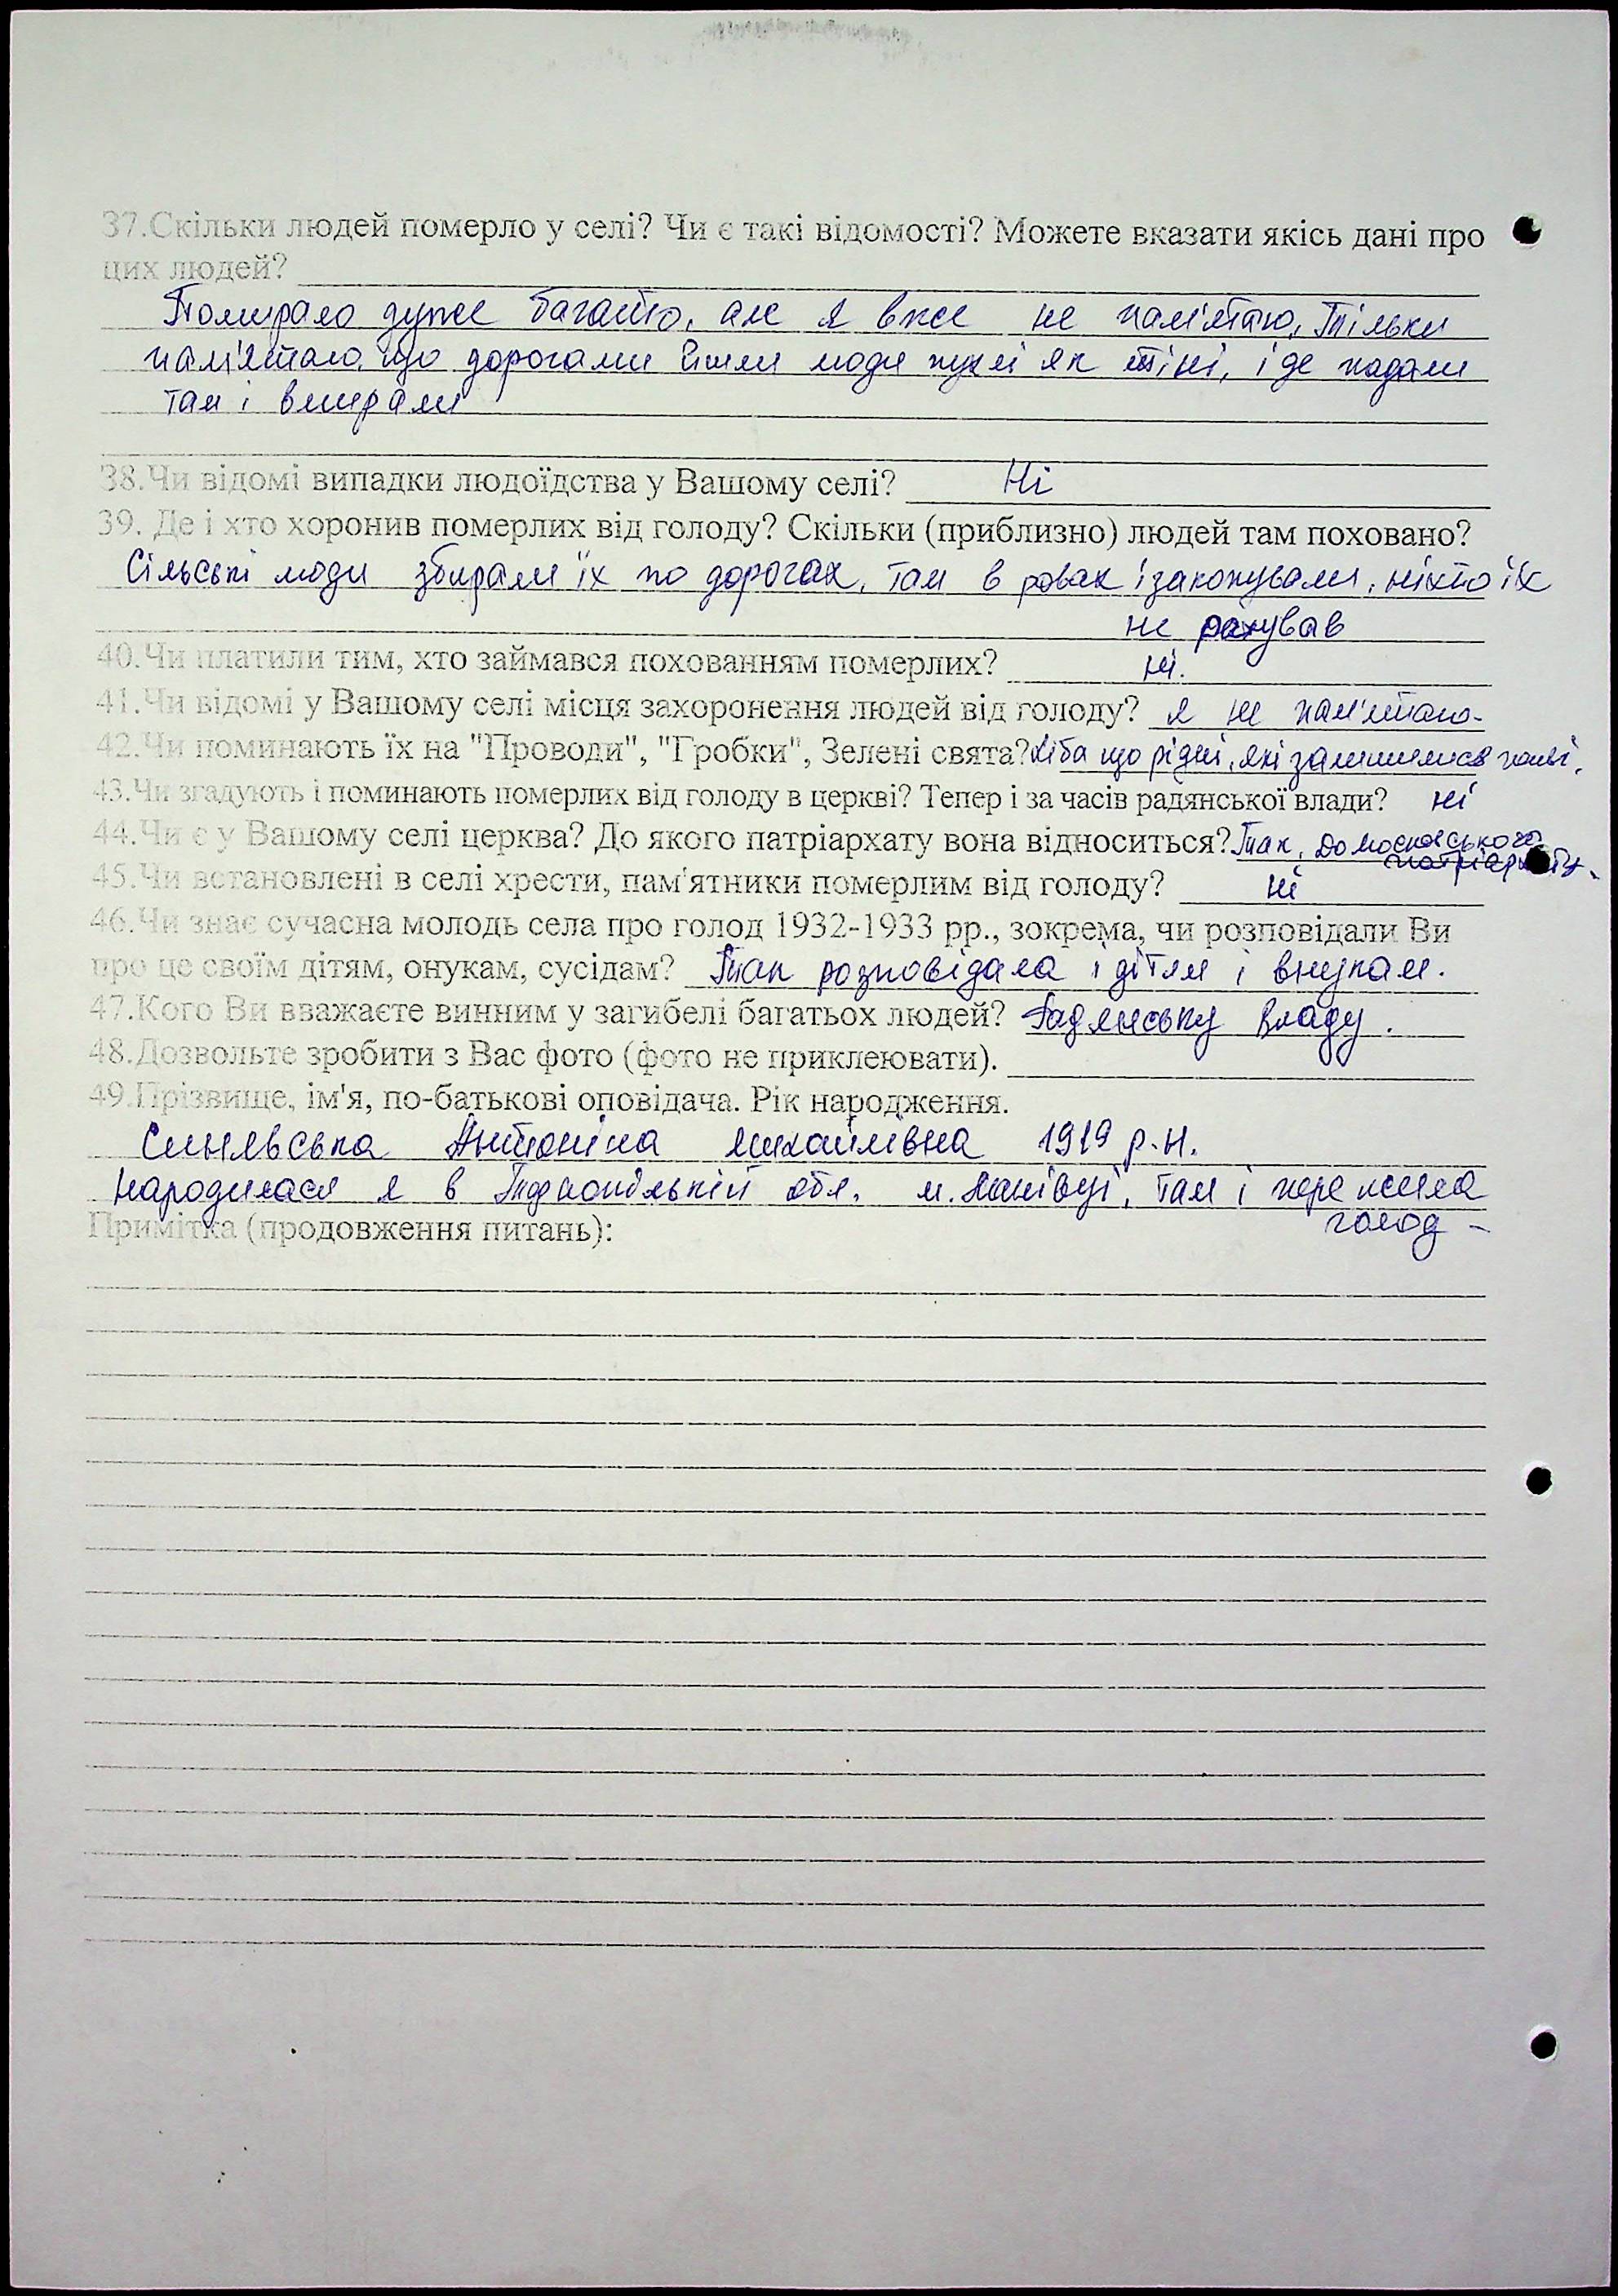 37.Скільки людей померло у селі? Чи є такі відомості? Можете вказати якісь дані про
цих людей?
Помирало дуже багато, але я вже не пам'ятаю, Тільки
пам'ятаю, що дорогами йшли люди худі як тіні, і де падали
там і вмирали
38.Чи відомі випадки людоїдства у Вашому селі? Ні
39. Де і хто хоронив померлих від голоду? Скільки (приблизно) людей там поховано?
Сільські люди збирали їх по дорогах, там в ровах і закопували, ніхто їх
не рахував
40.Чи платили тим, хто займався похованням померлих? ні.
41.Чи відомі у Вашому селі місця захоронення людей від голоду? я не пам'ятаю.
42.Чи поминають їх на "Проводи", "Гробки", Зелені свята? Хіба що рідні, які залишилися живі.
43.Чи згадують і поминають померлих від голоду в церкві? Тепер і за часів радянської влади? ні
44.Чи є у Вашому селі церква? До якого патріархату вона відноситься? Так, до московського
патріархату.
45.Чи встановлені в селі хрести, пам'ятники померлим від голоду? ні
46.Чи знає сучасна молодь села про голод 1932-1933 рр., зокрема, чи розповідали Ви
про це своїм дітям, онукам, сусідам? Так розповідала і дітям і внукам.
47.Кого Ви вважаєте винним у загибелі багатьох людей? Радянську владу.
48.Дозвольте зробити з Вас фото (фото не приклеювати).
49.Прізвище, ім'я, по-батькові оповідача. Рік народження.
Антоніна Михайлівна 1919 р.н.
Народилася я в Тернопільській обл. м. Ланівці, там і пережила
голод -
Примітка (продовження питань):